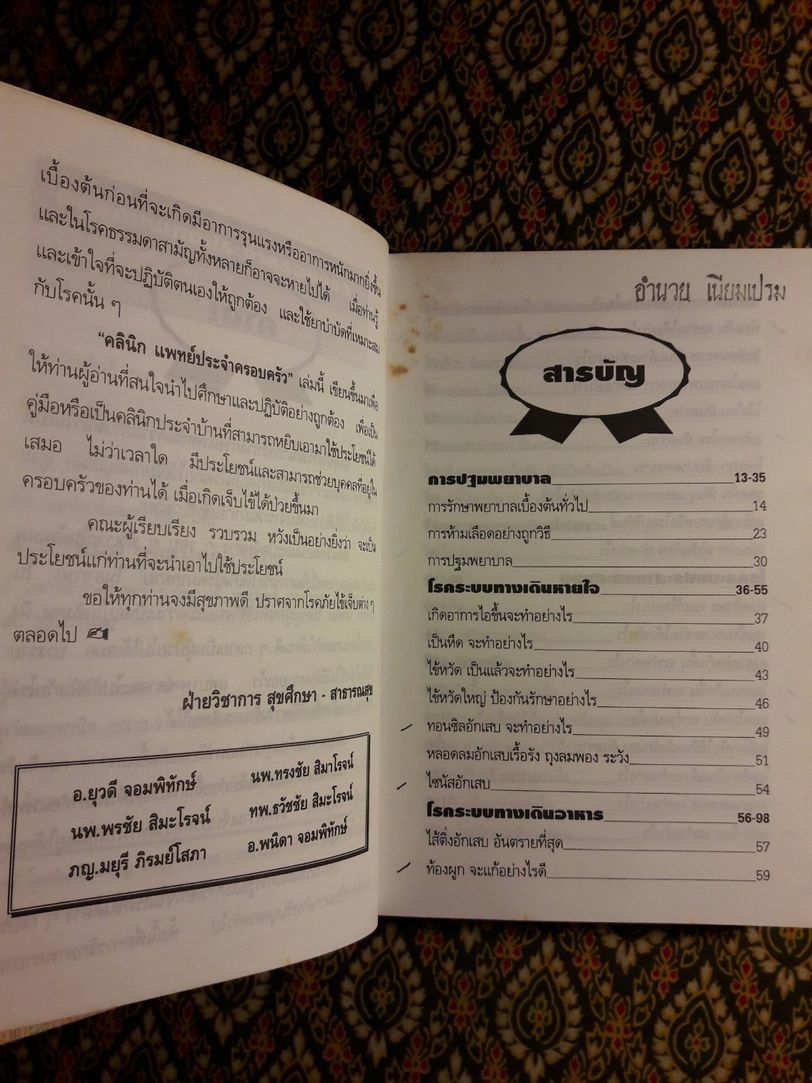 เบื้องต้นก่อนที่จะเกิดมีอาการรุนแรงหรืออาการหนักมากยิ่งขึ้น
และในโรคธรรมดาสามัญทั้งหลายก็อาจจะหายไปได้ เมื่อท่านรู้
และเข้าใจที่จะปฏิบัติตนเองให้ถูกต้อง และใช้ยาบำบัดที่เหมาะสม
กับโรคนั้น ๆ
“คลินิก แพทย์ประจำครอบครัว” เล่มนี้ เขียนขึ้นมาเพื่อ
ให้ท่านผู้อ่านที่สนใจนำไปศึกษาและปฏิบัติอย่างถูกต้อง เพื่อเป็น
คู่มือหรือเป็นคลินิกประจำบ้านที่สามารถหยิบเอามาใช้ประโยชน์ได้
เสมอ ไม่ว่าเวลาใด มีประโยชน์และสามารถช่วยบุคคลที่อยู่ใน
ครอบครัวของท่านได้ เมื่อเกิดเจ็บไข้ได้ป่วยขึ้นมา
คณะผู้เรียบเรียง รวบรวม หวังเป็นอย่างยิ่งว่า จะเป็น
ประโยชน์แก่ท่านที่จะนำเอาไปใช้ประโยชน์
ขอให้ทุกท่านจงมีสุขภาพดี ปราศจากโรคภัยไข้เจ็บต่าง ๆ
ตลอดไป
ฝ่ายวิชาการ สุขศึกษา - สาธารณสุข
อ.ยุวดี จอมพิทักษ์ นพ.ทรงชัย สิมาโรจน์
นพ.พรชัย สิมะโรจน์ ทพ.ธวัชชัย สิมะโรจน์
ภญ.มยุรี ภิรมย์โสภา อ.พนิดา จอมพิทักษ์
อำนวย เนียมเปรม
สารบัญ
การปฐมพยาบาล 13-35
การรักษาพยาบาลเบื้องต้นทั่วไป 14
การห้ามเลือดอย่างถูกวิธี 23
การปฐมพยาบาล 30
โรคระบบทางเดินหายใจ 36-55
เกิดอาการไอขึ้นจะทำอย่างไร 37
เป็นหืด จะทำอย่างไร 40
ไข้หวัด เป็นแล้วจะทำอย่างไร 43
ไข้หวัดใหญ่ ป้องกันรักษาอย่างไร 46
ทอนซิลอักเสบ จะทำอย่างไร 49
หลอดลมอักเสบเรื้อรัง ถุงลมพอง ระวัง 51
ไซนัสอักเสบ 54
โรคระบบทางเดินอาหาร 56-98
ไส้ติ่งอักเสบ อันตรายที่สุด 57
ท้องผูก จะแก้อย่างไรดี 59